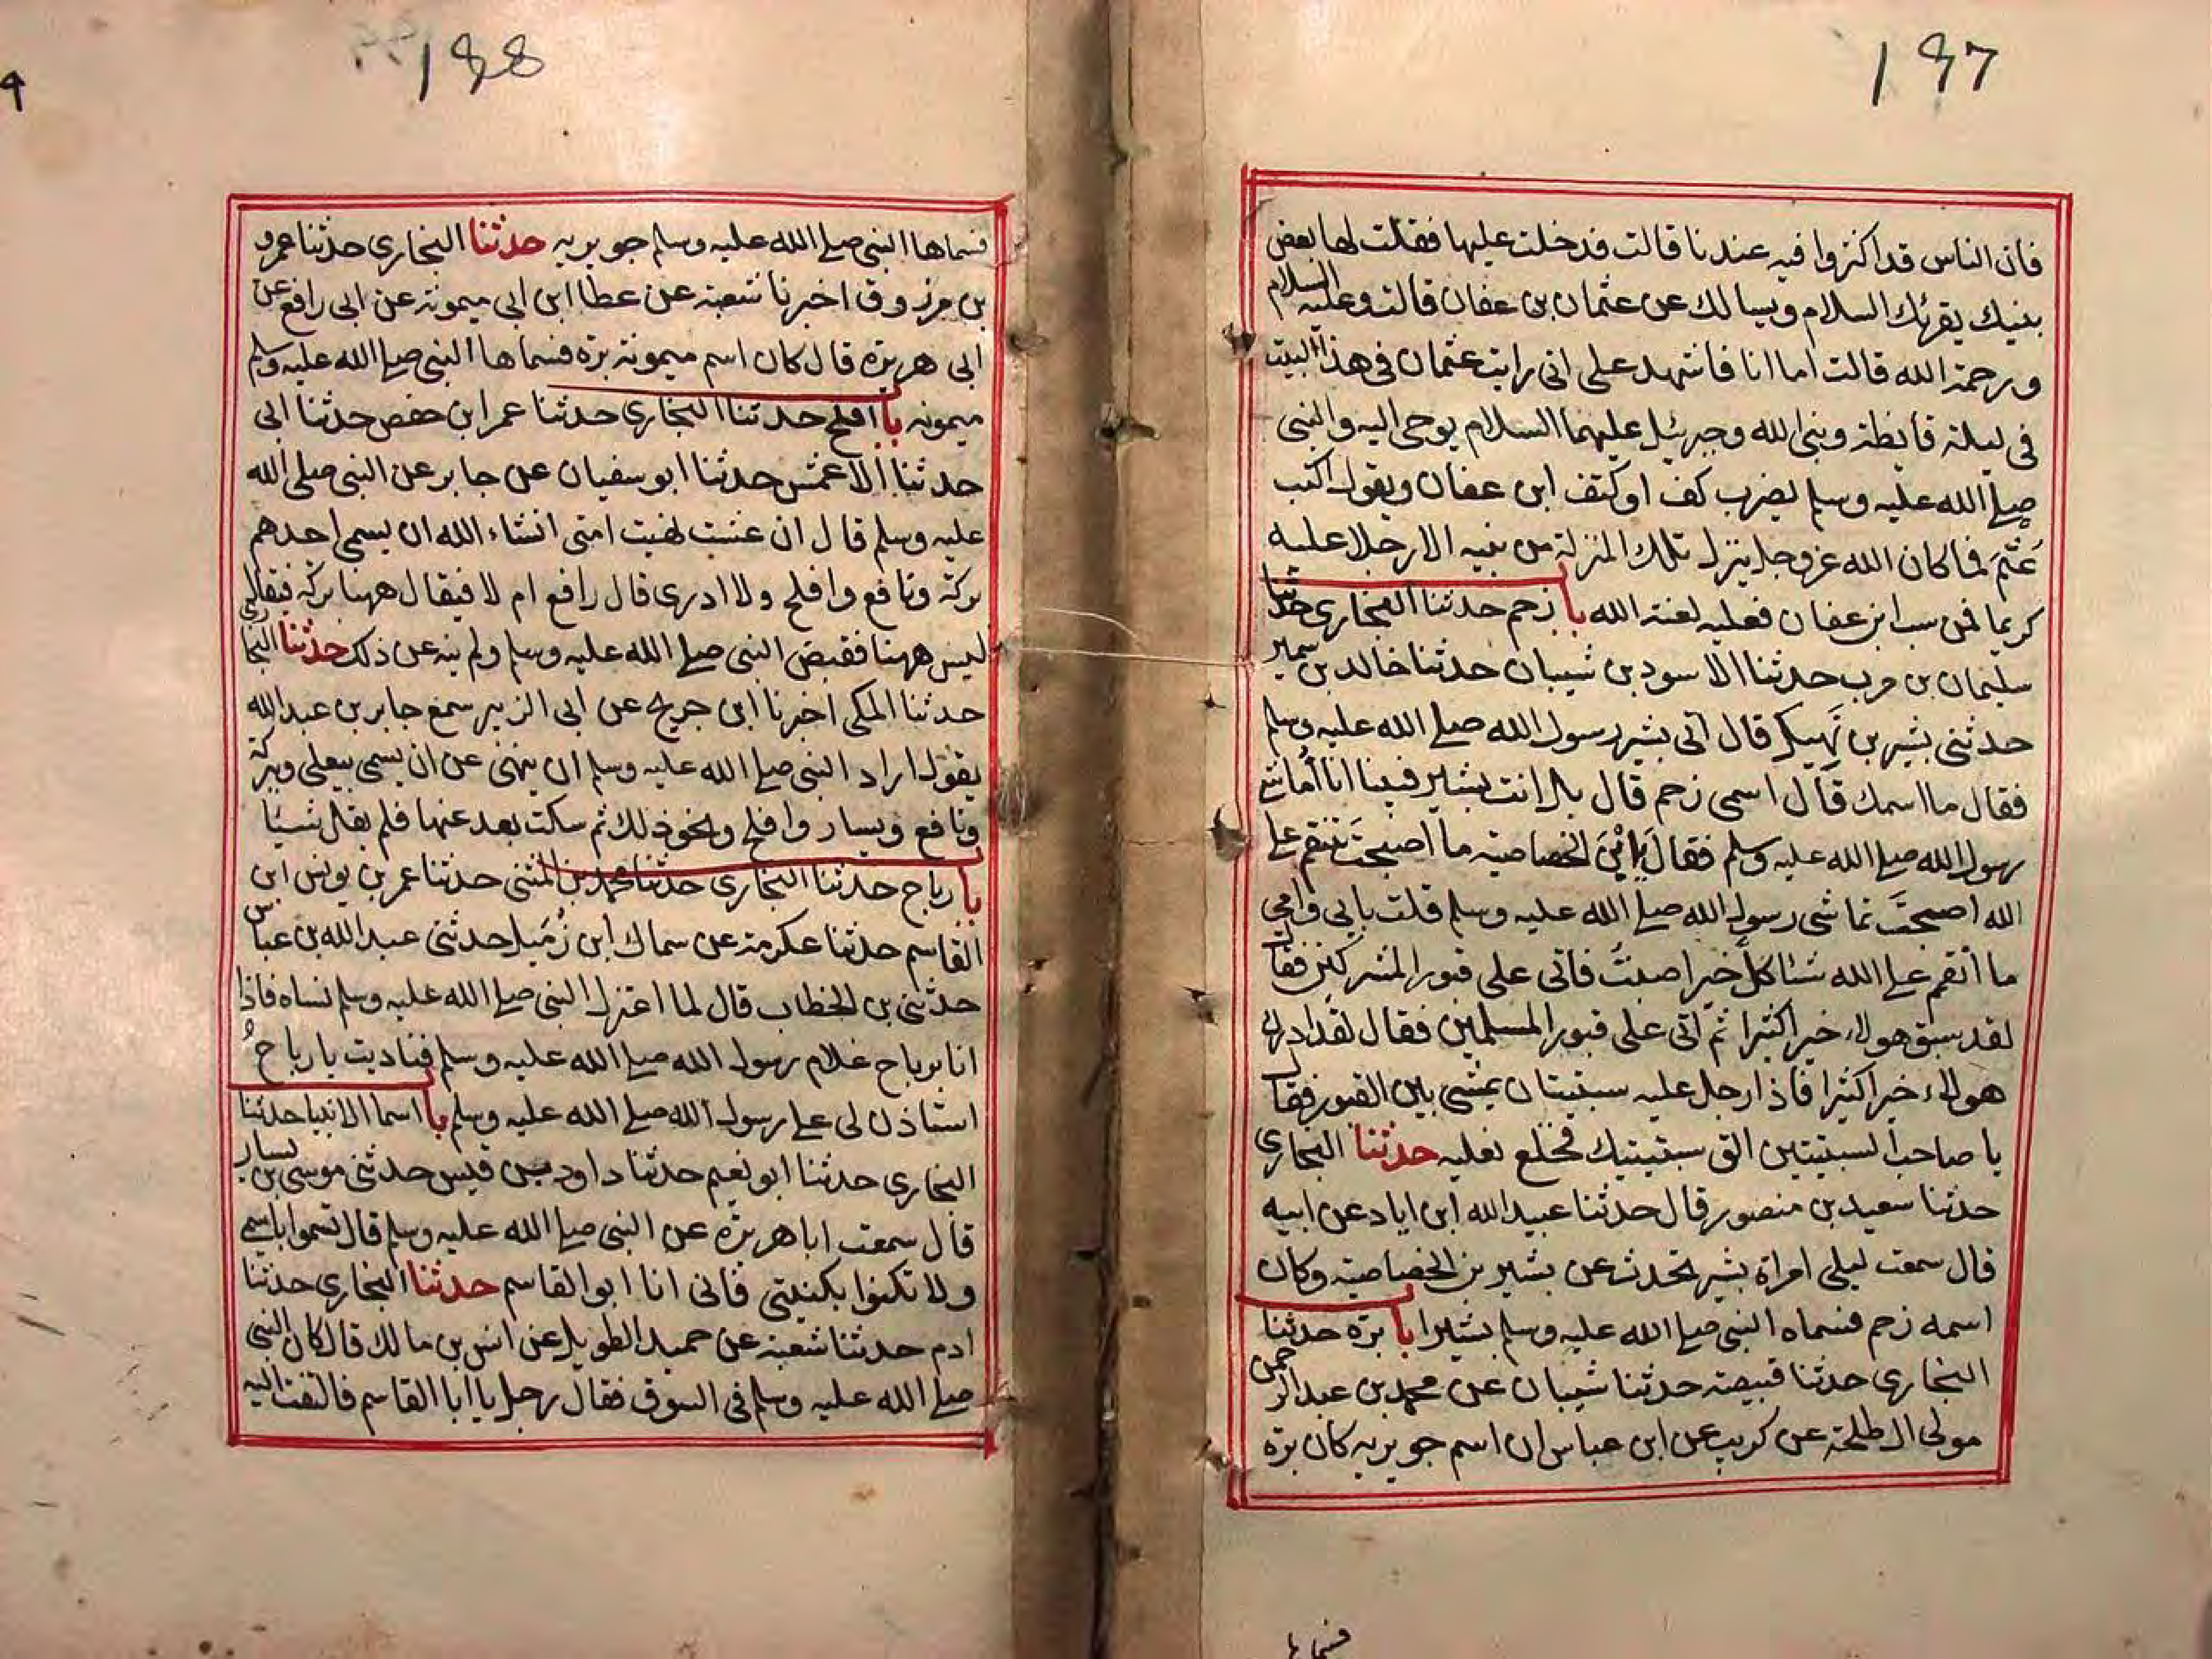 197
فان الناس قد اكثروا فيه عندنا قالت فدخلت عليها فقلت لها بعض
بنيك يقرئك السلام ويسالك عن عثمان بن عفان قالت وعليه السلام
ورحمة الله قالت اما انا فاشهد على انى رايت عثمان فى هذا البيت
فى ليلة قايظة ونبى الله وجبرئيل عليهما السلام يوحى اليه والنبى
صلے الله عليه وسلم يضرب كف او كتف ابن عفان ويقول اكتب
عَثْمَ فما كان الله عز وجل ينزل تلك المنزلة من نبيه الا رجلا عليه
كريما فمن سب ابن عفان فعليه لعنة الله با زحم حدثنا البخارى حدثنا
سليمان بن حرب حدثنا الاسود بن شيبان حدثنا خالد بن سمير
حدثنى بشير بن نَهِيك قال اتى بشير رسول الله صلے الله عليه وسلم
فقال ما اسمك قال اسمى زحم قال بل انت بشير فبينا انا اُماشے
رسول الله صلے الله عليه وسلم فقال يا ابْنَ الخصاصية ما اصبحتَ تنقم علے
الله اصبحتَ تماشى رسول الله صلے الله عليه وسلم قلت بابى وامى
ما أنقم علے الله شئا كلَّ خير اصبتُ فاتى على قبور المشركين فقال
لقد سبق هولاء خيرا كثيرا ثم اتى على قبور المسلمين فقال لقد ادرك
هولاء خيرا كثيرا فاذا رجل عليه سبتيتان يمشى بين القبور فقال
يا صاحب السبتيتين الق سبتيتيك فخلع نعليه حدثنا البخارى
حدثنا سعيد بن منصور قال حدثنا عبيد الله ابن اياد عن ابيه
قال سمعت ليلى امراة بشير تحدث عن بشير بن الخصاصية وكان
اسمه زحم فسماه النبى صلے الله عليه وسلم بشيرا با برّة حدثنا
البخارى حدثنا قبيصة حدثنا شيبان عن محمد بن عبد الرحمن
مولى ال طلحة عن كريب عن ابن عباس ان اسم جويريه كان برّة
فسماها
198
فسماها النبى صلے الله عليه وسلم جويريه حدثنا البخارى حدثنا عمرو
بن مرزوق اخبرنا شعبة عن عطا ابن ابى ميمونة عن ابى رافع عن
ابى هريرة قال كان اسم ميمونة برّة فسماها النبى صلے الله عليه وسلم
ميمونه با افلح حدثنا البخارى حدثنا عمر ابن حفص حدثنا ابى
حدثنا الاعمش حدثنا ابو سفيان عن جابر عن النبى صلى الله
عليه وسلم قال ان عشت نهيت امتى انشاء الله ان يسمى احدهم
بركة ونافع وافلح ولا ادرى قال رافع ام لا فيقال ههنا بركة فيقال
ليس ههنا فقبض النبى صلے الله عليه وسلم ولم ينه عن ذلك حدثنا البخارى
حدثنا المكى اخبرنا ابن جريج عن ابى الزبير سمع جابر بن عبد الله
يقول اراد النبى صلے الله عليه وسلم ان ينهى عن ان يسمى بيعلى وببركة
ونافع ويسار وافلح ونحو ذلك ثم سكت بعد عنها فلم يقل شيئا
با رباح حدثنا البخارى حدثنا محمد بن المثنى حدثنا عمر بن يونس ابن
القاسم حدثنا عكرمة عن سماك ابن زُمَيل حدثنى عبد الله بن عباس
حدثنى بن الخطاب قال لما اعتزل النبى صلے الله عليه وسلم نساه فاذا
انا برباح غلام رسول الله صلے الله عليه وسلم فناديت يا رباحُ
استاذن لى علے رسول الله صلے الله عليه وسلم با اسما الانبيا حدثنا
البخارى حدثنا ابو نعيم حدثنا داود بن قيس حدثنى موسى بن يسار
قال سمعت ابا هريرة عن النبى صلے الله عليه وسلم قال تسموا باسمى
ولا تكنوا بكنيتى فانى انا ابو القاسم حدثنا البخارى حدثنا
ادم حدثنا شعبة عن حميد الطويل عن انس بن مالك قال كان النبى
صلے الله عليه وسلم فى السوق فقال رجل يا ابا القاسم فالتفت اليه